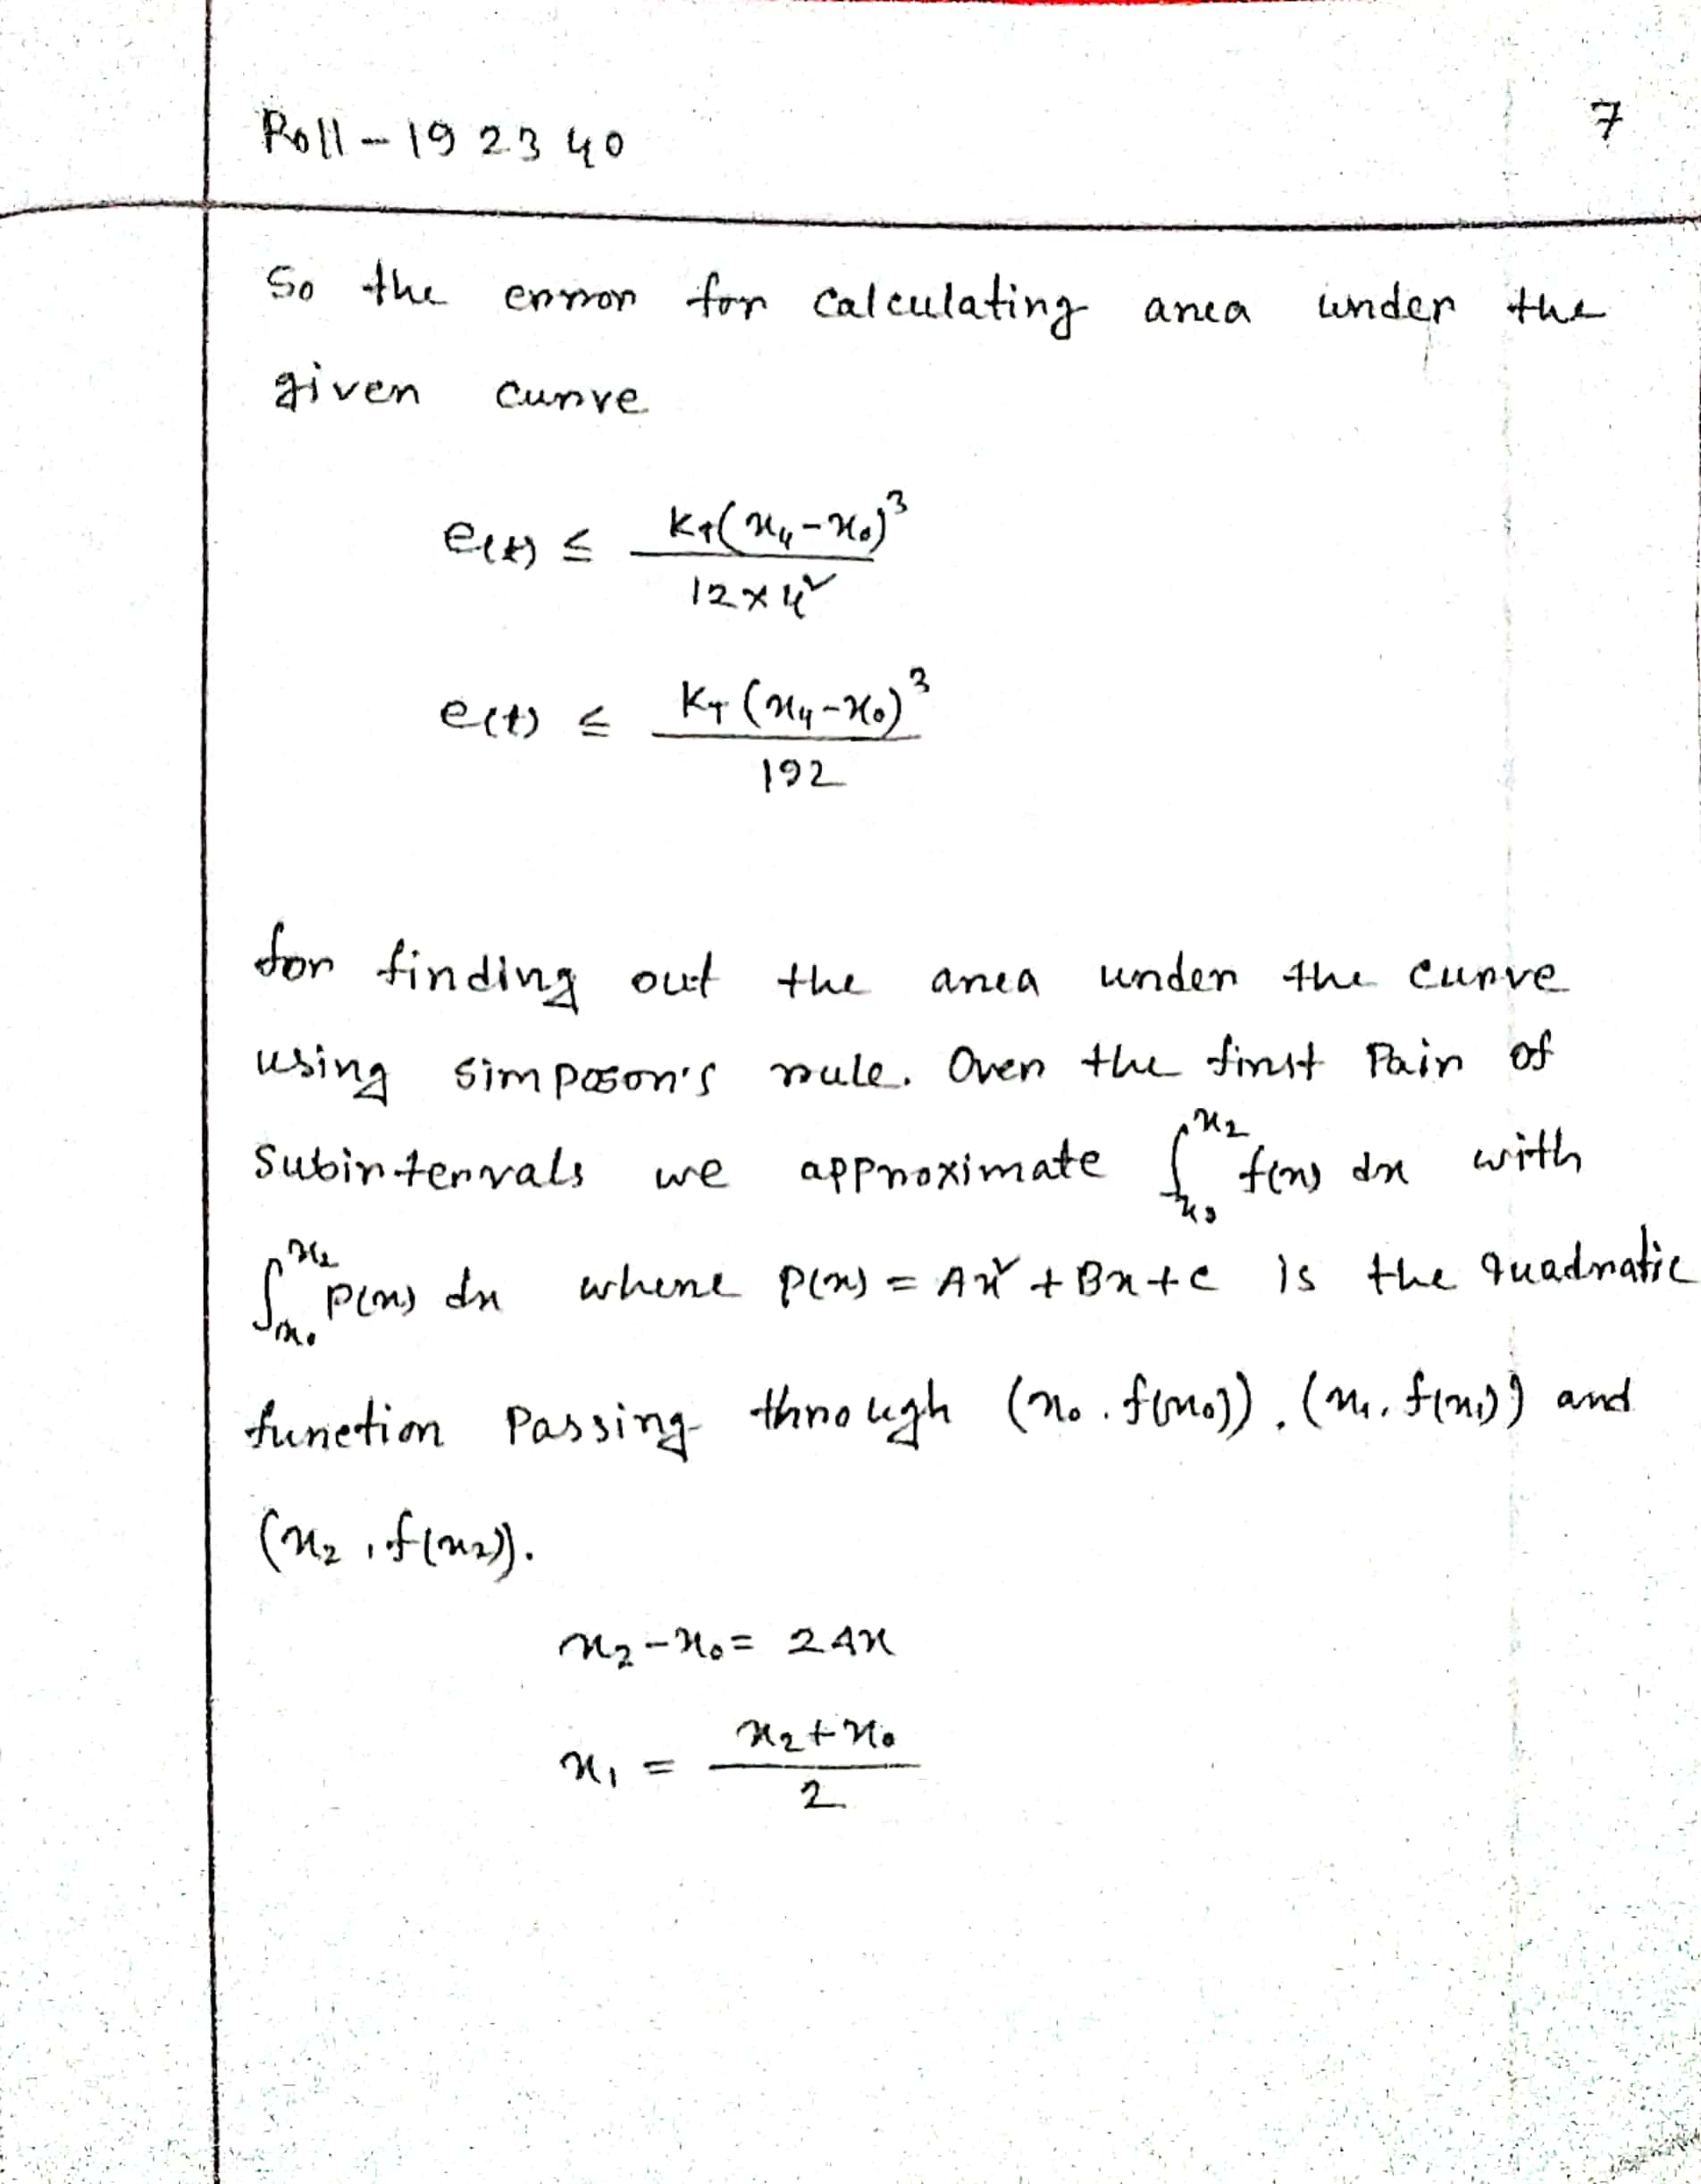 Roll - 192340
7
So the error for calculating area under the
given curve
e(t) ≤ K_T(x₄-x₀)³ / 12×4²
e(t) ≤ K_T(x₄-x₀)³ / 192
for finding out the area under the curve
using simposon's rule. Over the first Pair of
Subintervals we approximate ∫_{x₀}^{x₂} f(x) dx with
∫_{x₀}^{x₂} p(x) dx where p(x) = Ax² + Bx + c is the quadratic
function Passing through (x₀, f(x₀)), (x₁, f(x₁)) and
(x₂, f(x₂)).
x₂-x₀ = 2Δx
x₁ = x₂+x₀ / 2